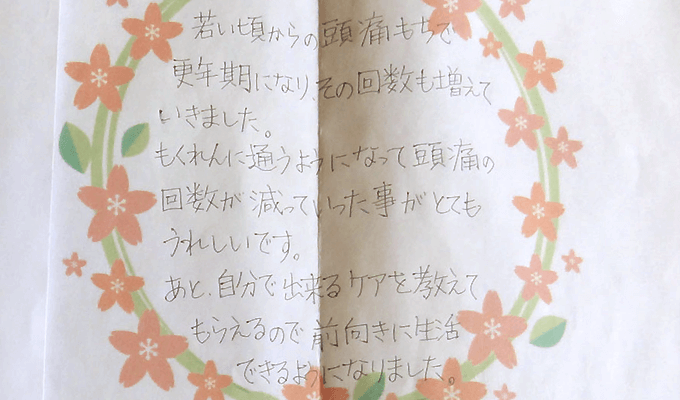 若い頃からの頭痛もちで
更年期になり、その回数も増えて
いきました。
もくれんに通うようになって頭痛の
回数が減っていった事がとても
うれしいです。
あと、自分で出来るケアを教えて
もらえるので前向きに生活
できるようになりました。